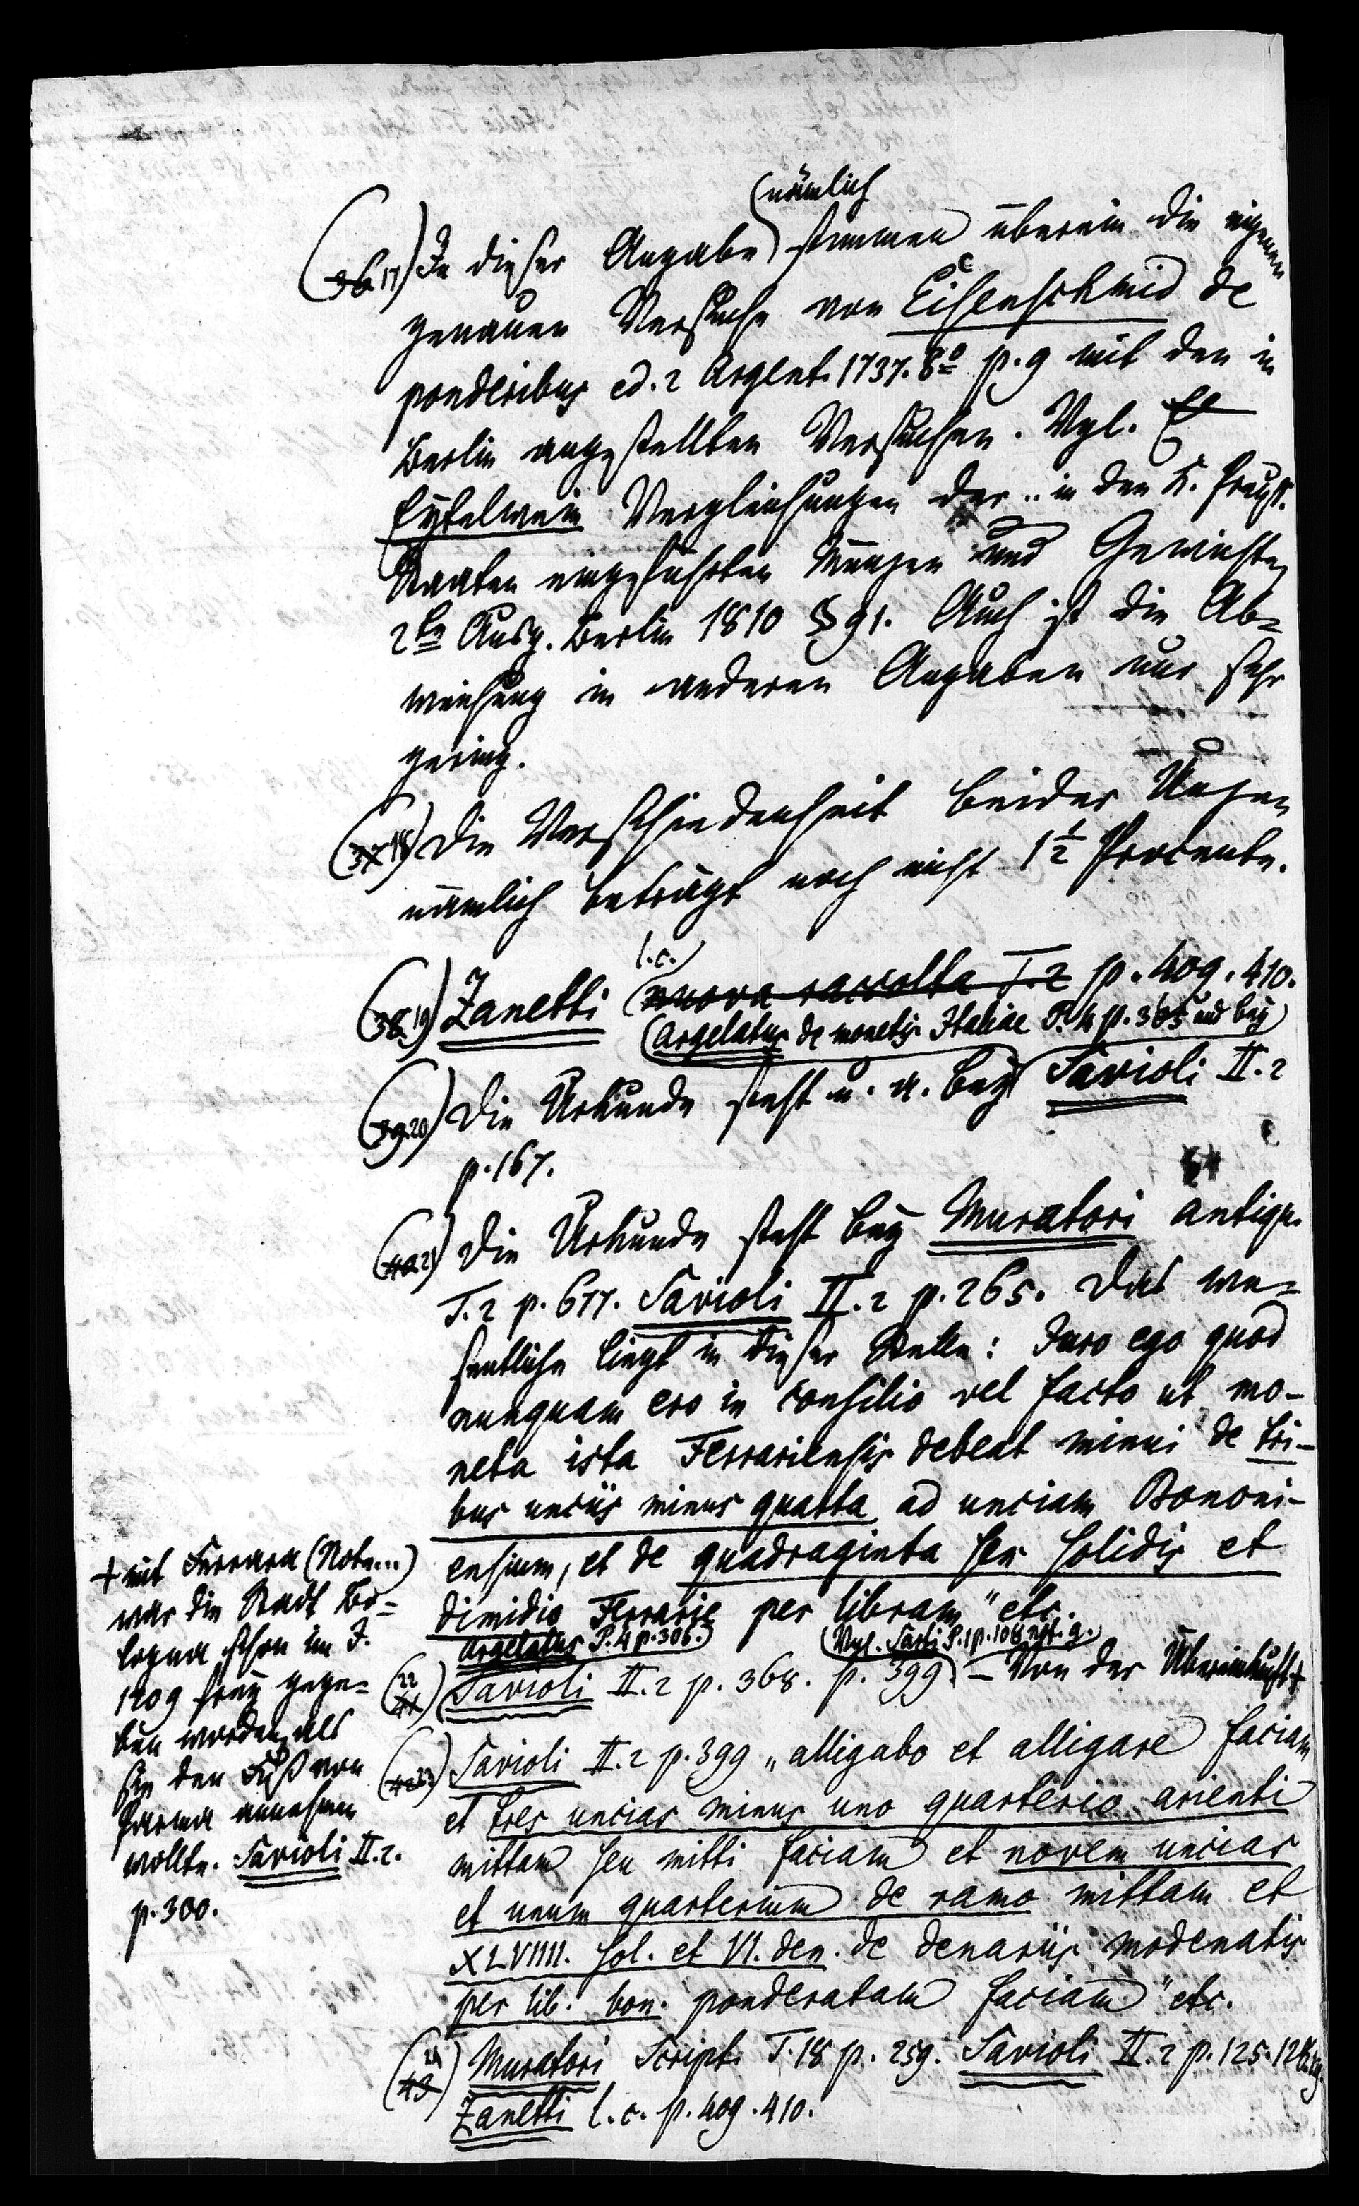 (nämlich
(36 17) In dieser Angabe stimmen überein die eigenen
genauen Versuche von Eisenschmid de
ponderibus ed. 2 Argent. 1737. 8º p. 9 mit den in
Berlin angestellten Versuchen. Vgl.
Eytelwein Vergleichungen der .. in den K. Preuß.
Staaten eingeführten Maaßen und Gewichte,
2te Ausg. Berlin 1810 § 91. Auch ist die Ab=
weichung in anderen Angaben nur sehr
gering.
(37 18) Die Verschiedenheit beider Unzen
nämlich beträgt noch nicht 1½ Procente.
l.c.)
(38 19) Zanetti (nuova raccolta T. 2 p. 409. 410.
(Argelatus de monetis Italiae P. 4 p. 305 und bey)
(39 20) Die Urkunde steht u. a. bey Savioli II. 2
p. 167.
(40 21) Die Urkunde steht bey Muratori antiqu.
T. 2 p. 677. Savioli II. 2 p. 265. Das we=
sentliche liegt in dieser Stelle: Juro ego quod
nunquam ero in consilio vel facto ut mo-
neta ista Ferrariensis debeat minui de tri-
bus unciis minus quarta ad unciam Bononi-
ensium, et de quadraginta sex solidis et
dimidio Ferrarie per libram" etc.
Argelatus P. 4 p. 306.) (Vgl. Sarti P. 1 p. 106 not. g.)
(41 22) (Savioli II. 2 p. 368. p. 399. – Von der Übereinkunft +
+ mit Ferrara (Note...)
war die Stadt Bo=
logna schon im J.
1209 frey gege=
ben worden, als
sie den Fuß von
Parma annehmen
wollte. Savioli II. 2.
p. 300.
(42 23) Savioli II. 2 p. 399 „alligabo et alligare faciam
et tres uncias minus uno quarterio arienti
mittam seu mitti faciam et novem uncias
et unum quarterium de ramo mittam et
XLVIIII. sol. et VI. den. de denariis modenatis
per lib. bon. ponderatam faciam" etc.
(43 24) Muratori Script. T. 18 p. 259. Savioli II. 2 p. 125. 126.
Zanetti l. c. p. 409. 410.